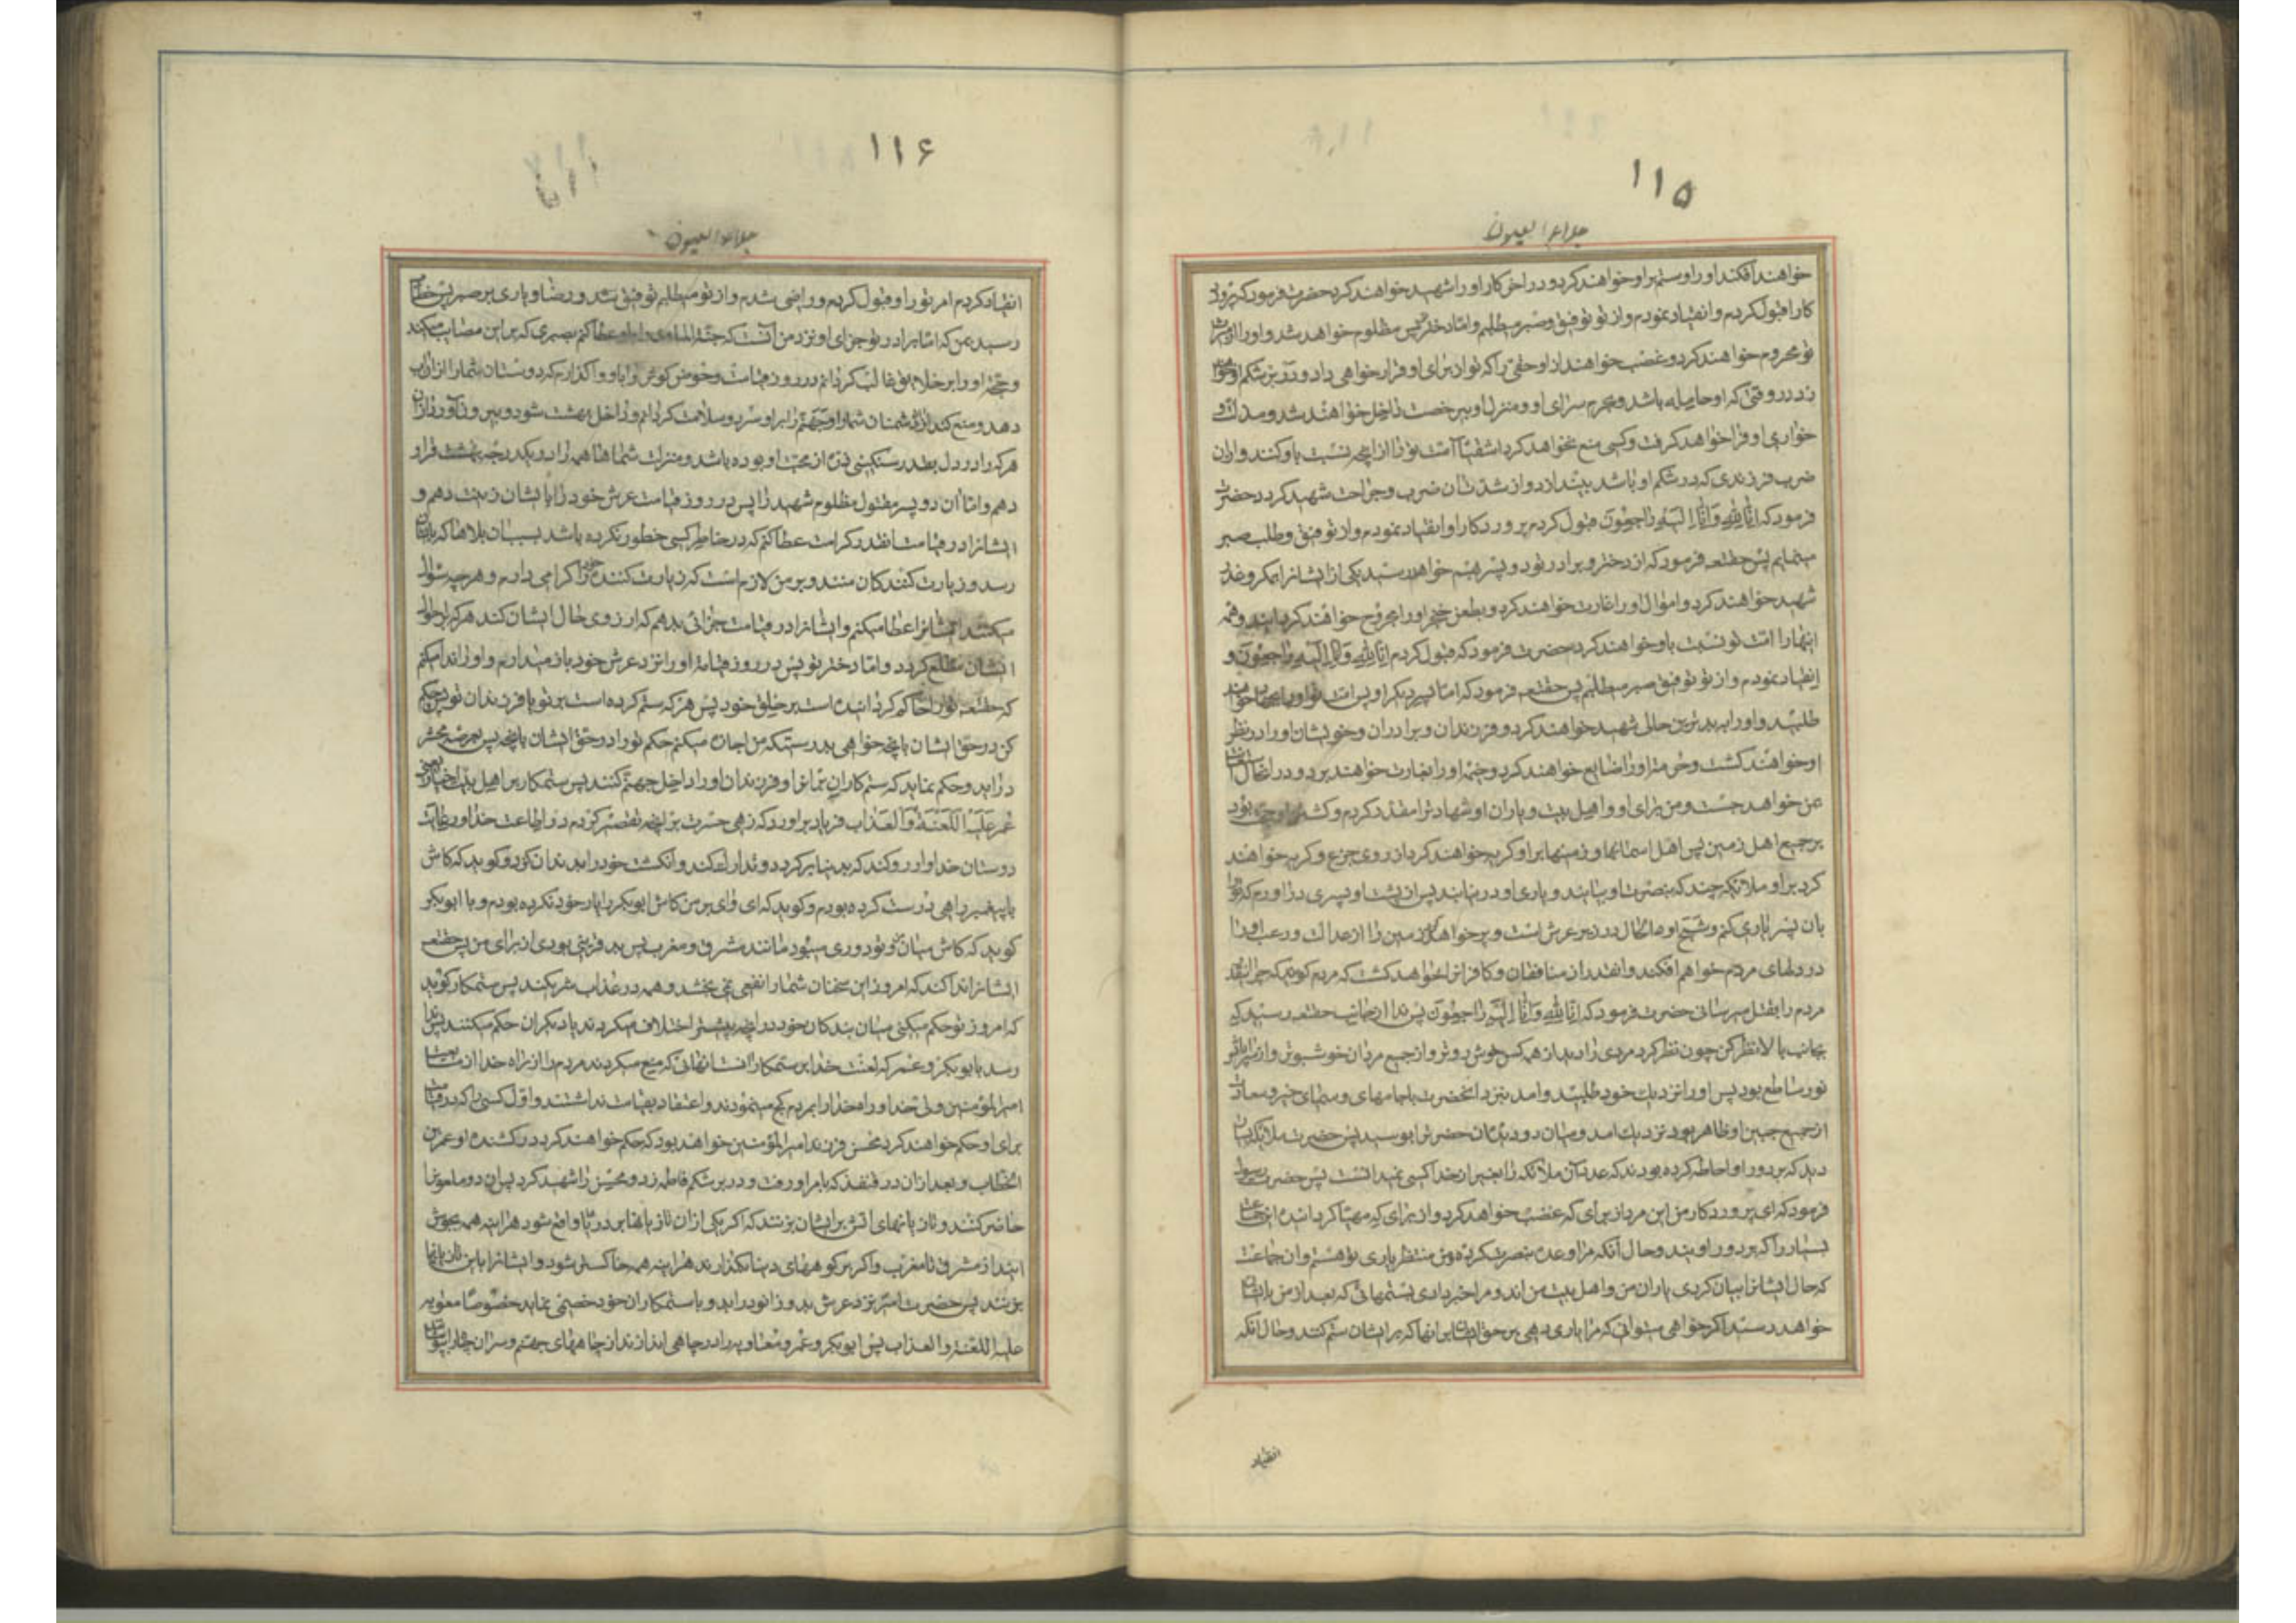 ۱۱۵
جلاء العیون
خواهند افکند او را و ستم بر او خواهند کرد و در اخر کار او را شهید خواهند کرد حضرت فرمود که پرورد
کارا قبول کردم و انقیاد نمودم و از تو توفیق و صبر میطلبم و اما دخترت پس مظلوم خواهد شد و او را از
تو محروم خواهند کرد و غصب خواهند از او حقی را که تو از برای او قرار خواهی داد و در بر شکم او خوا
زد در وقتی که او حامله باشد و بحرم سرای او و منزل او بیرخصت داخل خواهند شد و مذلت و
خواری او را فرا خواهد کرفت و کسی منع نخواهد کرد اشقیا امت تو را از انچه نسبت باو کنند و از ان
ضرب فرزندی که در شکم او باشد بیندازد و از شدت ان ضرب و جراحت شهید کردد حضرت
فرمود که اِنّا لِلّهِ وَاِنّا اِلَیهِ راجِعُونَ قبول کردم پروردکارا و انقیاد نمودم و از تو توفیق و طلب صبر
مینمایم پس حقتعه فرمود که از دختر و برادر تو دو پسر بهم خواهد رسید یکی از ایشانرا بمکر و غدر
شهید خواهند کرد و اموال او را غارت خواهند کرد و بطعن خنجر او را مجروح خواهند کردانید و همه
اینها را امت تو نسبت باو خواهند کرد حضرت فرمود که قبول کردم انا لله و انا الیه راجعون و
انقیاد نمودم و از تو توفیق صبر میطلبم پس حقتعه فرمود که اما پسر دیکر او پس امت تو او را بجهاد خواهند
طلبید و او را به بدترین حالی شهید خواهند کرد و فرزندان و برادران و خویشان او را در نظر
او خواهند کشت و حرمت او را ضایع خواهند کرد و خیمه او را بغارت خواهند برد و در انحال استعانت
من خواهد جست و من برای او و اهل بیت و یاران او شهادترا مقدر کردم و کشتن او حجتی بود
بر جمیع اهل زمین پس اهل اسمانها و زمینها بر او کریه خواهند کرد از روی جزع و کریه خواهند
کرد بر او ملائکه چند که بنصرت او بیایند و یاری او در نیابند پس از پشت او پسری در اورم که ترا
بان پسر یاری کنم و شبح او مثال در زیر عرش است و پر خواهد کرد زمین را از عدالت و رعب او را
در دلهای مردم خواهم افکند و انقدر از منافقان و کافران خواهد کشت که مردم کویند که چرا انقدر
مردم را بقتل میرسانی حضرت فرمود که انا لله و انا الیه راجعون پس ندا از جانب حقتعه رسید که
بجانب بالا نظر کن چون نظر کرد مردی را دید از همه کس خوش روتر و از جمیع مردان خوشبوتر و از سراپای
نور ساطع بود پس او را نزدیک خود طلبید و امد بنزد انحضرت با جامهای و سیمای خیر و سعادت
از جمیع جبین او ظاهر بود نزدیک امد و میان دو دیدهٔ ان حضرترا بوسید پس حضرت ملائکه بسیار
دید که بر دور او احاطه کرده بودند که عدد آن ملائکه را بغیر از خدا کسی نمیدانست پس حضرت رسول
فرمود که ای پروردکار من این مرد از برای که غضب خواهد کرد و از برای که مهیا کردانیدهٔ این جماعت
بسیار را که بر دور اویند و حال آنکه مرا وعده نصرت کردهٔ و من منتظر یاری تو هستم و ان جماعت
که حال ایشانرا بیان کردی یاران من و اهل بیت من اند و مرا خبر دادی بستمهائی که بعد از من بایشان
خواهد رسید اکر خواهی میتوانی که مرا یاری دهی بر حق ایشان بر انها که بر ایشان ستم کنند و حال آنکه
انقیاد
۱۱۶
جلاء العیون
انقیاد کردم امر تو را و قبول کردم و راضی شدم و از تو میطلبم توفیق شد و رضا و یاری بر صبر پس خطاب
رسید بمن که اما برادر تو جزای او نزد من آنست که جنة الماوی را باو عطا کنم بصبری که بر این مصائب میکند
و حجة او را بر خلایق غالب کردانم در روز قیامت و حوض کوثر را باو واکذارم که دوستان شما را از ان اب
دهد و منع کند از ان دشمنان شما را و جهنم را بر او سرد و سلامت کردانم و داخل بهشت شود و بیرون آورد از ان
هر که را در دل بقدر سنکینی ذره از محبت او بوده باشد و منزلت شما ها همه را در یکدرجه بهشت قرار
دهم و اما ان دو پسر مقتول مظلوم شهید را پس در روز قیامت عرش خود را بایشان زینت دهم و
ایشانرا در قیامت انقدر کرامت عطا کنم که در خاطر کسی خطور نکرده باشد بسبب ان بلاها که بایشان
رسد و زیارت کنندکان منند و بر من لازم است که زیارت کننده خود را کرامی دارم و هر چه سؤال
میکنند ایشانرا عطا میکنم و ایشانرا در قیامت جزائی بدهم که ارزوی حال ایشان کند هر که بر احوال
ایشان مطلع کردد و اما دختر تو پس در روز قیامت او را نزد عرش خود باز میدارم و او را ندا میکنم
که حقتعه تو را حاکم کردانیده است بر خلق خود پس هر که ستم کرده است بر تو یا فرزندان تو پس حکم
کن در حق ایشان بانچه خواهی بدرستیکه من اجازه میکنم حکم تو را در حق ایشان بانچه پس بعرصه محشر
دراید و حکم نماید که ستم کاران تمام او و فرزندان او را داخل جهنم کنند پس ستمکار بر اهل بیت اخیار یعنی
عُمَر عَلَیهِ اللَّعنَةُ وَالعَذاب فریاد براورد که زهی حسرت بر انچه تقصیر کردم در اطاعت خدا و رعایت
دوستان خدا و ارزو کند که بدنیا برکردد و تدارک کند و انکشت خود را بدندان کزد و کوید که کاش
با پیغمبر راهی درست کرده بودم و کوید که ای وای بر من کاش ابوبکر را یار خود نکرده بودم و با ابوبکر
کوید که کاش میان من و تو دوری میبود مانند مشرق و مغرب پس بد قرینی بودی از برای من پس حقتعه
ایشانرا ندا کند که امروز این سخنان شما را نفعی نمی بخشد و همه در عذاب شریکند پس ستمکار کوید
که امروز تو حکم میکنی میان بندکان خود در انچه پیشتر اختلاف میکردند یا دیکران حکم میکنند پس ندا
رسد بابوبکر و عمر که لعنت خدا بر ستمکارانست انهائی که منع میکردند مردم را از راه خدا
امیرالمؤمنین ولی خدا و راه خدا را بمردم کج مینمودند و اعتقاد بقیامت نداشتند و اول کسی را که در قیامت
برای او حکم خواهند کرد محسن فرزند امیرالمؤمنین خواهد بود که حکم خواهند کرد در کشندهٔ او عمر بن
الخطاب و بعد از ان در قنفذ که بامر او رفت و در بر شکم فاطمه زد و محسن را شهید کرد پس ان دو ملعونرا
حاضر کنند و تازیانهای اتش بر ایشان بزنند که اکر یکی از ان تازیانها بر دریا واقع شود هراینه همه بجوش
ایند از مشرق تا مغرب و اکر بر کوههای دنیا بکذارند هراینه همه خاکستر شود و ایشانرا باین تازیانها
بزنند پس حضرت امیر نزد عرش بدو زانو دراید و با ستمکاران خود خصمی نماید خصوصا معویه
علیه اللعنة و العذاب پس ابوبکر و عمر و معاویه را در چاهی اندازند از چاههای جهنم و سر ان چاه را بپوشانند